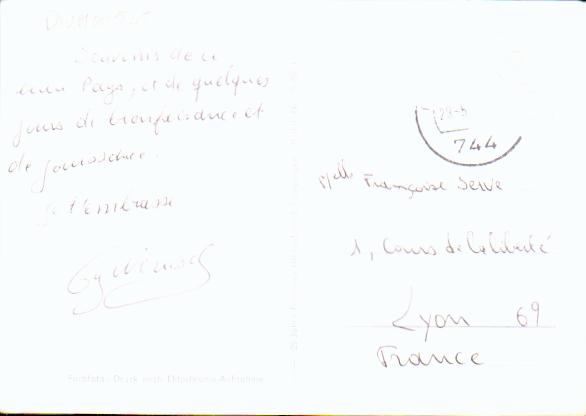 Souvenir de ce
beau Pays, et de quelques
jours de bienfaisance et
de jouissance.
Je t'embrasse
28-5
744
Mlle Françoise Serve
1, Cours de la liberté
Lyon 69
France
Farbfoto: Druck nach Ektachrome-Aufnahme